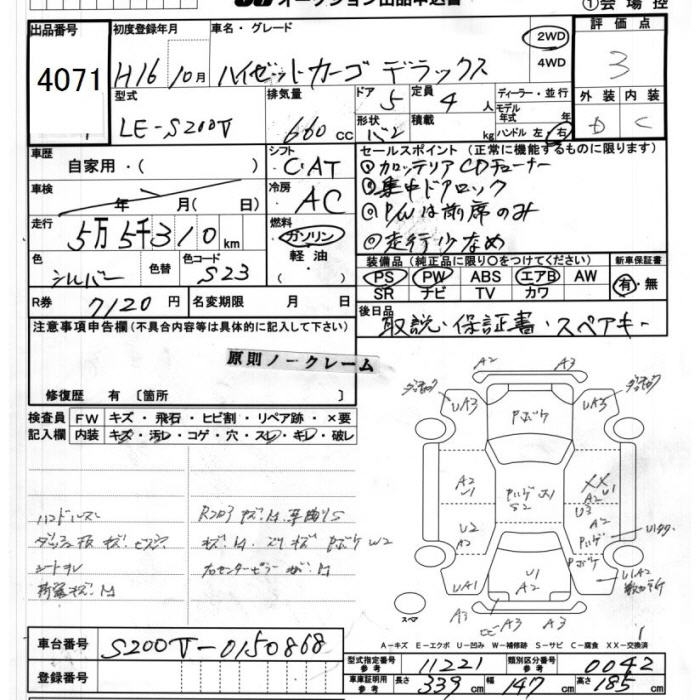 オークション出品申込書
① 会場控
出品番号 4071
初度登録年月 H16 10月
車名・グレード ハイゼットカーゴ デラックス
2WD
4WD
評価点 3
型式 LE-S200V
排気量 660 cc
ドア 5
定員 4 人
形状 バン
積載 kg
ディーラー・並行
モデル年式 年
ハンドル 左・右
外装 D
内装 C
車歴 自家用・( )
シフト C・AT
車検 年 月( 日)
冷房 AC
走行 5万5千310 km
燃料 ガソリン
軽油
・( )
色 シルバー
色替
色コード S23
R券 7120 円
名変期限 月 日
セールスポイント (正常に機能するものに限ります)
①カロッテリアCDチューナー
②集中ドアロック
③P/Wは前席のみ
④走行少なめ
装備品 (純正品に限り○をつけてください)
新車保証書
PS PW ABS エアB AW
SR ナビ TV カワ
有・無
後日品 取説・保証書・スペアキー
注意事項申告欄 (不具合内容等は具体的に記入して下さい)
原則ノークレーム
修復歴 有 〔箇所 〕
検査員記入欄
FW キズ・飛石・ヒビ割・リペア跡・×要
内装 キズ・汚レ・コゲ・穴・スレ・キレ・破レ
ハンドルスレ
シートヨレ
A2 A3
UA3 UA3
Pボケ
A2
U1
XX
A2 U1
U3
U2
A2
A2
U1
A2
UA1
U1A2
A3 A3 A3
スペア
A=キズ E=エクボ U=凹み W=補修跡 S=サビ C=腐食 XX=交換済
車台番号 S200V-0150868
登録番号
型式指定番号 参考 11221
類別区分番号 参考 0042
車庫証明用 参考 長さ 339 cm 幅 147 cm 高さ 185 cm